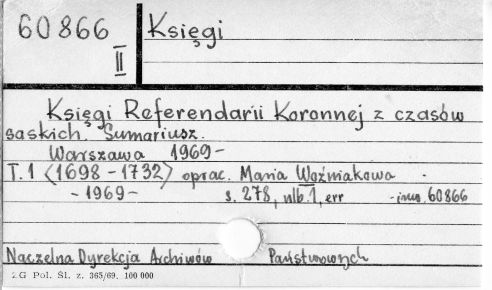 60866 Księgi
II
Księgi Referendarii Koronnej z czasów
saskich. Sumariusz.
Warszawa 1969-
T.1 <1698-1732> oprac. Maria Woźniakowa
-1969- s. 278, nlb. 1, err -inw. 60866
Naczelna Dyrekcja Archiwów Państwowych
ZG Pol. Śl. z. 365/69. 100 000